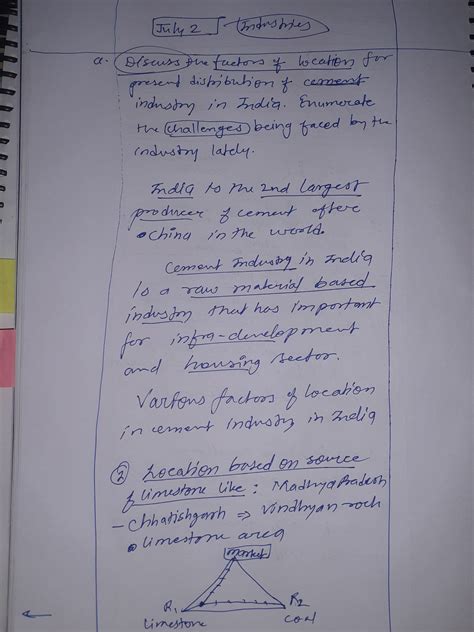 July 2 - Industries
Q. Discuss the factors of location for
present distribution of cement
industry in India. Enumerate
the challenges being faced by the
industry lately.
India is the 2nd largest
producer of cement after
China in the world.
Cement Industry in India
is a raw material based
industry that has important
for infra-development
and housing sector.
Various factors of location
in cement industry in India
② Location based on source
of limestone like: Madhya Pradesh
- Chhatishgarh ⇒ Vindhyan rock
• limestone area
market
R₁ R₂
limestone coal